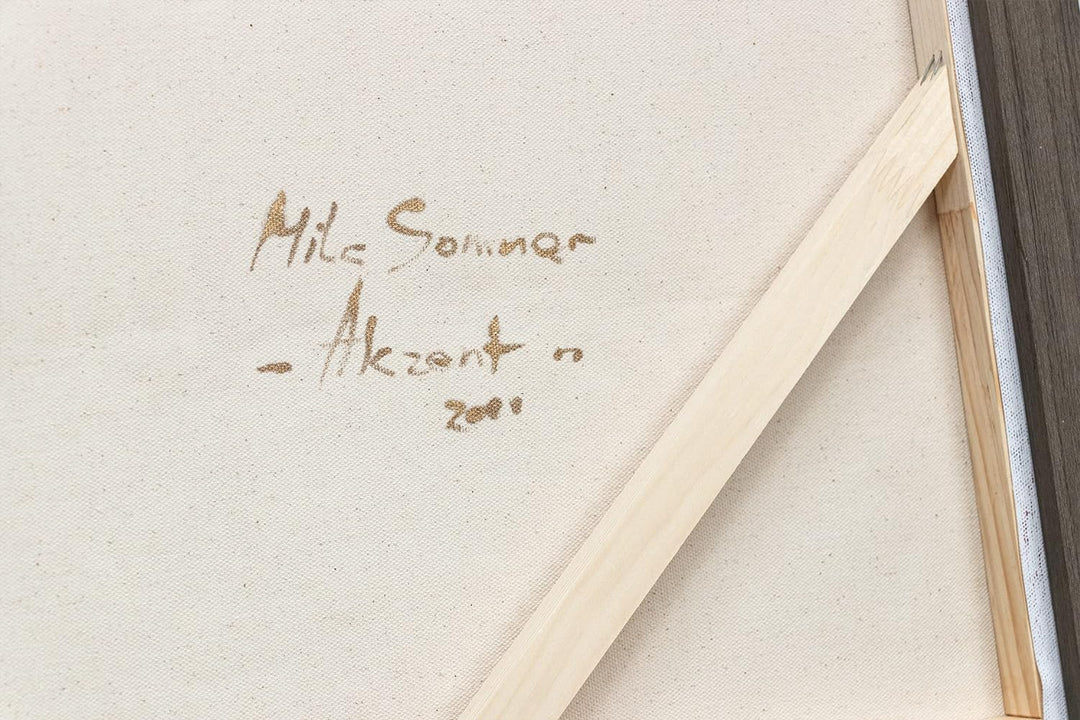 Mila Sommer
- Akzent -
2011